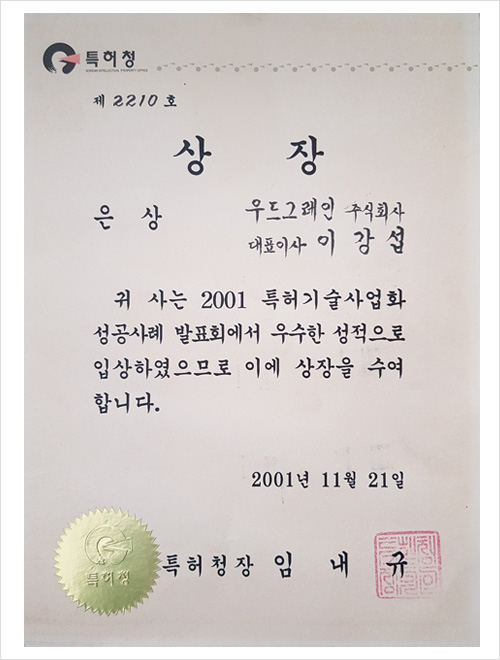 특허청
KOREAN INTELLECTUAL PROPERTY OFFICE
제 2210 호
상 장
은 상 우드그레인 주식회사
대표이사 이 강 섭
귀 사는 2001 특허기술사업화
성공사례 발표회에서 우수한 성적으로
입상하였으므로 이에 상장을 수여
합니다.
2001년 11월 21일
특허청장 임 내 규
특허청